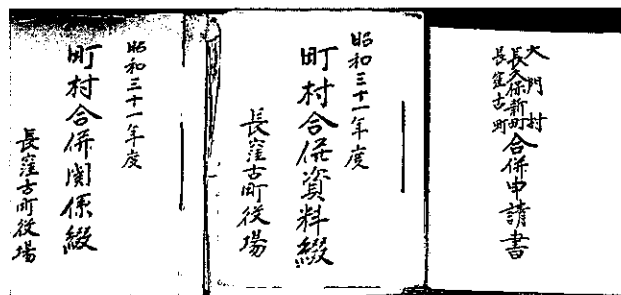 大門村
長久保新町
長窪古町
合併申請書
昭和三十一年度
町村合併資料綴
長窪古町役場
昭和三十一年度
町村合併関係綴
長窪古町役場